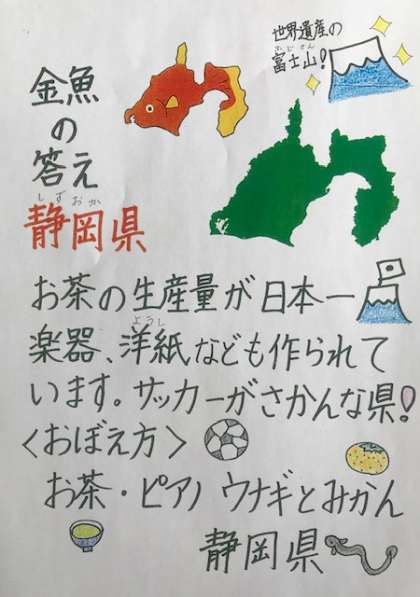 世界遺産の
ふじさん
富士山!
金魚
の
答え
しずおか
静岡県
お茶の生産量が日本一
ようし
楽器、洋紙なども作られて
います。サッカーがさかんな県!
〈おぼえ方〉
お茶・ピアノ ウナギとみかん
静岡県